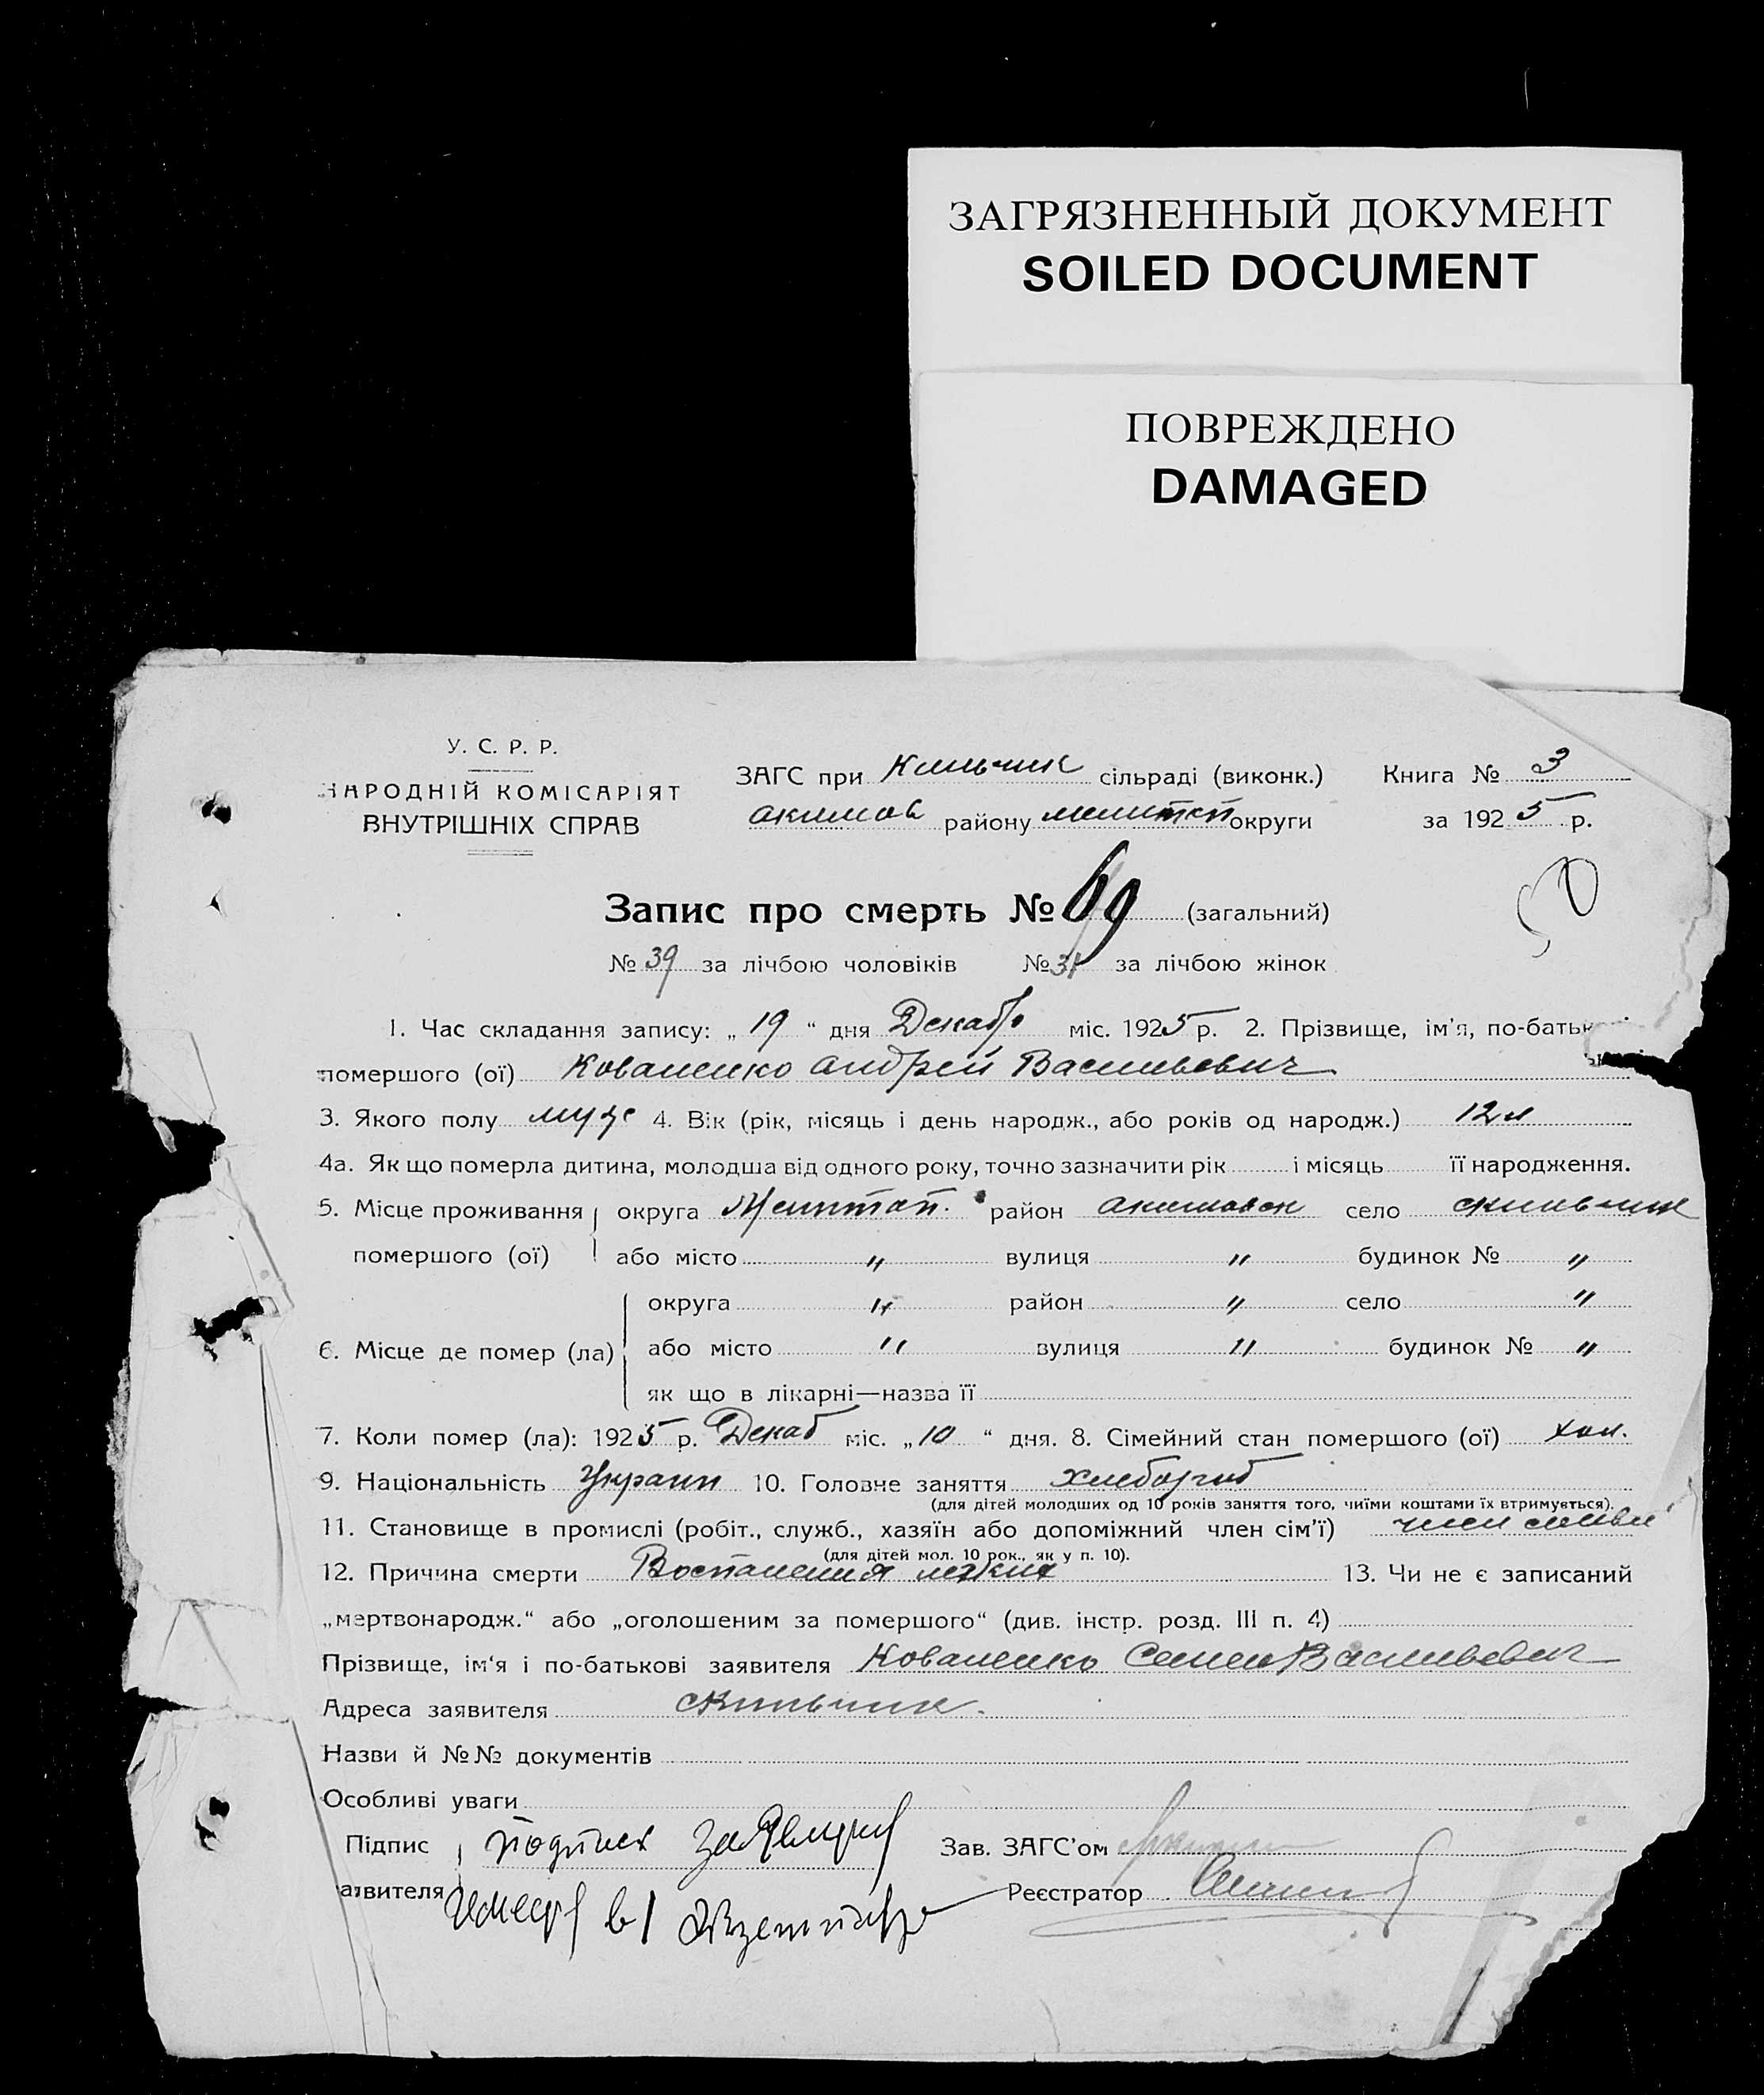 ЗАГРЯЗНЕННЫЙ ДОКУМЕНТ
SOILED DOCUMENT
ПОВРЕЖДЕНО
DAMAGED
У. С. Р. Р.
НАРОДНІЙ КОМІСАРІЯТ
ВНУТРІШНІХ СПРАВ
ЗАГС при Кильчик сільраді (виконк.)
Акимов району Мелитоп округи
Книга № 3
за 1925 р.
50
Запис про смерть № 69 (загальний)
№ 39 за лічбою чоловіків № 31 за лічбою жінок
1. Час складання запису: „ 19 “ дня Декабр міс. 1925 р. 2. Прізвище, ім'я, по-батьк
помершого (ої) Коваленко Андрей Васильевич
3. Якого полу муж 4. Вік (рік, місяць і день народж., або років од народж.) 12 л
4а. Як що померла дитина, молодша від одного року, точно зазначити рік і місяць її народження.
5. Місце проживання округа Мелитоп. район Акимовск село
помершого (ої) або місто " вулиця " будинок № "
округа " район " село "
6. Місце де помер (ла) або місто " вулиця " будинок № "
як що в лікарні—назва її
7. Коли помер (ла): 1925 р. Декаб міс. „ 10 “ дня. 8. Сімейний стан помершого (ої) хол.
9. Національність Украин 10. Головне заняття хлебороб
(для дітей молодших од 10 років заняття того, чиїми коштами їх втримується).
11. Становище в промислі (робіт., служб., хазяїн або допоміжний член сім'ї) член семьи
(для дітей мол. 10 рок., як у п. 10).
12. Причина смерти Воспаления легких 13. Чи не є записаний
„мертвонародж.“ або „оголошеним за помершого“ (див. інстр. розд. III п. 4)
Прізвище, ім'я і по-батькові заявителя Коваленко Семен Васильевич
Адреса заявителя
Назви й №№ документів
Особливі уваги
Підпис подпись заявител Зав. ЗАГС'ом
аявителя имеетс в 1 экземпляре Реєстратор